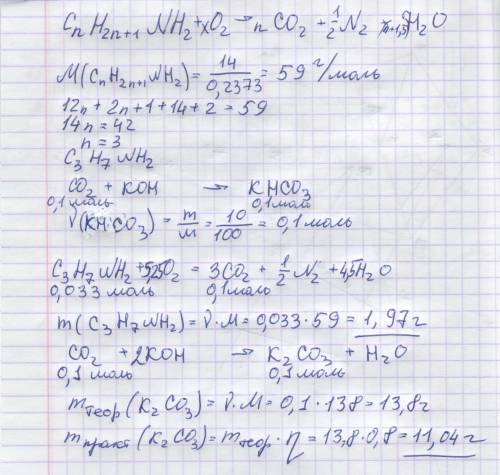 CnH2n+1NH2+xO2 → nCO2 + 1/2N2 (n+1,5)H2O
M(CnH2n+1NH2) = 14/0,2373 = 59 г/моль
12n + 2n + 1 + 14 + 2 = 59
14n = 42
n = 3
C3H7NH2
CO2 + KOH → KHCO3
0,1моль 0,1моль
ν(KHCO3) = m/M = 10/100 = 0,1моль
C3H7NH2 + 5,25O2 = 3CO2 + 1/2N2 + 4,5H2O
0,033моль 0,1моль
m(C3H7NH2) = ν·M = 0,033·59 = 1,97г
CO2 + 2KOH → K2CO3 + H2O
0,1моль 0,1моль
mтеор(K2CO3) = ν·M = 0,1·138 = 13,8г
mпракт(K2CO3) = mтеор·η = 13,8·0,8 = 11,04г